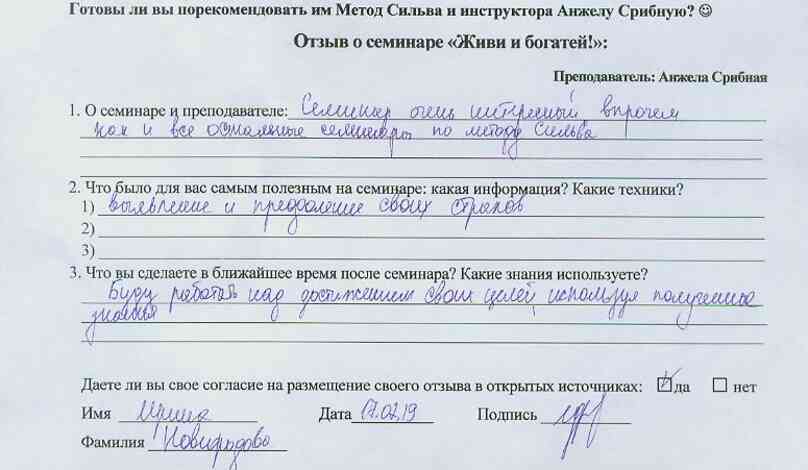 Готовы ли вы порекомендовать им Метод Сильва и инструктора Анжелу Срибную? ☺
Отзыв о семинаре «Живи и богатей!»:
Преподаватель: Анжела Срибная
1. О семинаре и преподавателе: Семинар очень интересный, впрочем
как и все остальные семинары по методу Сильва
2. Что было для вас самым полезным на семинаре: какая информация? Какие техники?
1) выявление и преодоление своих страхов
2)
3)
3. Что вы сделаете в ближайшее время после семинара? Какие знания используете?
Буду работать над достижением своих целей, используя полученные
знания
Даете ли вы свое согласие на размещение своего отзыва в открытых источниках: ☑ да ☐ нет
Имя Ирина Дата 17.02.19 Подпись
Фамилия